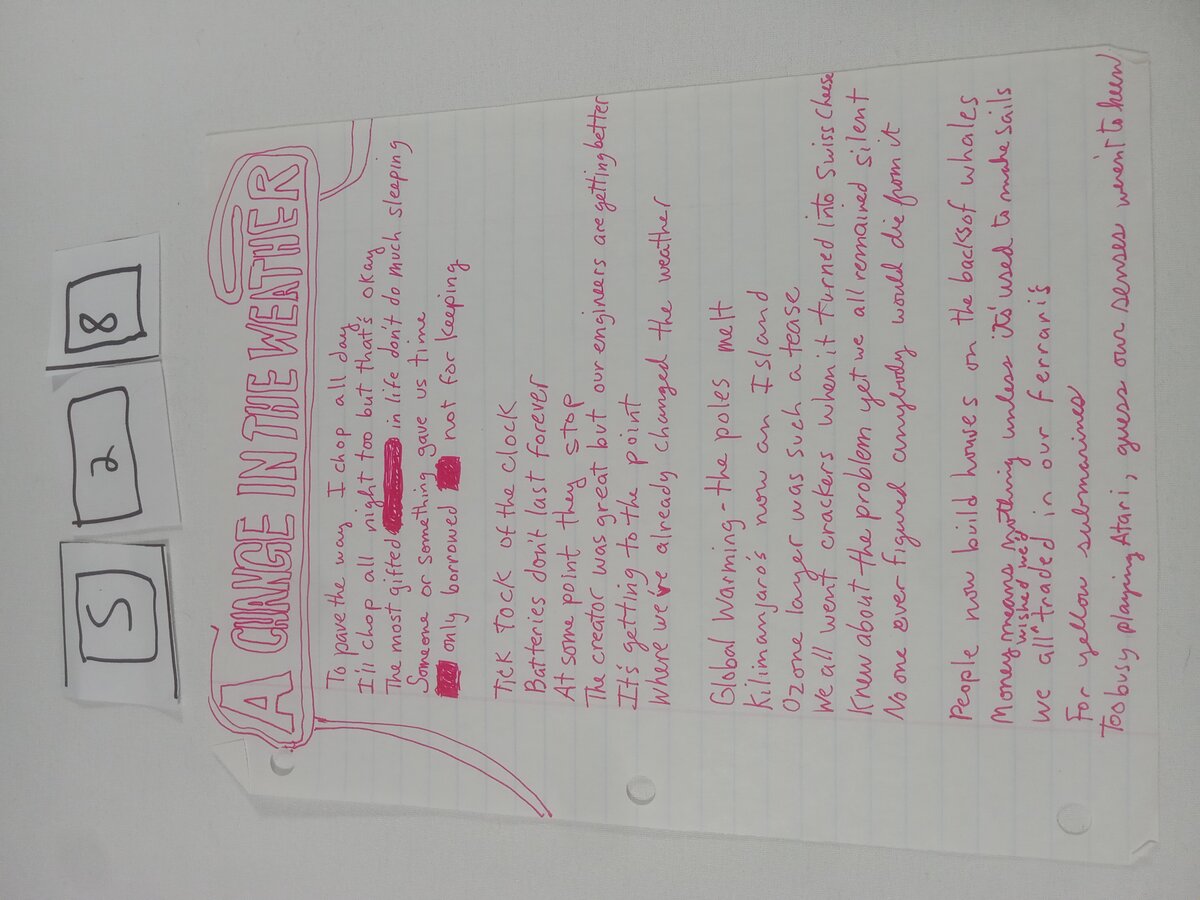 5 2 8
A CHANGE IN THE WEATHER
To pave the way I chop all day
I'll chop all night too but that's okay
The most gifted in life don't do much sleeping
Someone or something gave us time
only borrowed not for keeping
Tick Tock of the clock
Batteries don't last forever
At some point they stop
The creator was great but our engineers are getting better
It's getting to the point
Where we're already changed the weather
Global Warming - the poles melt
Kilimanjaro's now an Island
Ozone layer was such a tease
We all went crackers when it turned into Swiss Cheese
Knew about the problem yet we all remained silent
No one ever figured anybody would die from it
People now build houses on the backs of whales
Money means nothing unless it's used to make sails
We all wished we'd traded in our ferrari's
For yellow submarines
Too busy playing Atari, guess our senses weren't to keen